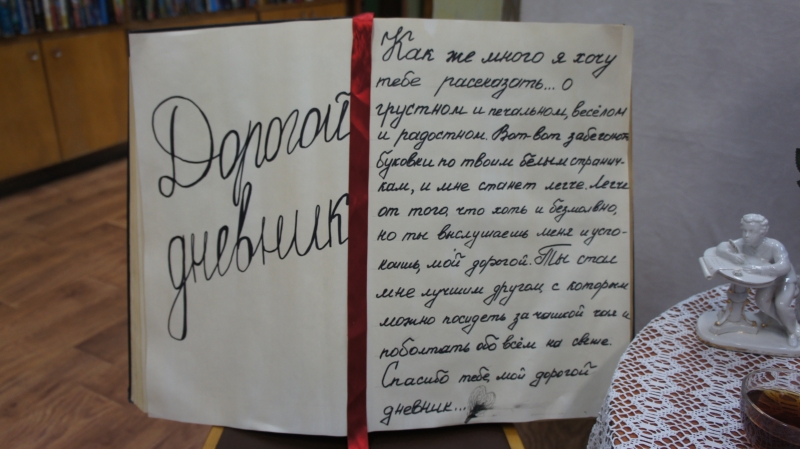 Дорогой
дневник
Как же много я хочу
тебе рассказать... о
грустном и печальном, весёлом
и радостном. Вот-вот забегают
буковки по твоим белым странич-
кам, и мне станет легче. Легче
от того, что хоть и безмолвно,
но ты выслушаешь меня и успо-
коишь, мой дорогой. Ты стал
мне лучшим другом, с которым
можно посидеть за чашкой чая и
поболтать обо всём на свете.
Спасибо тебе, мой дорогой
дневник...